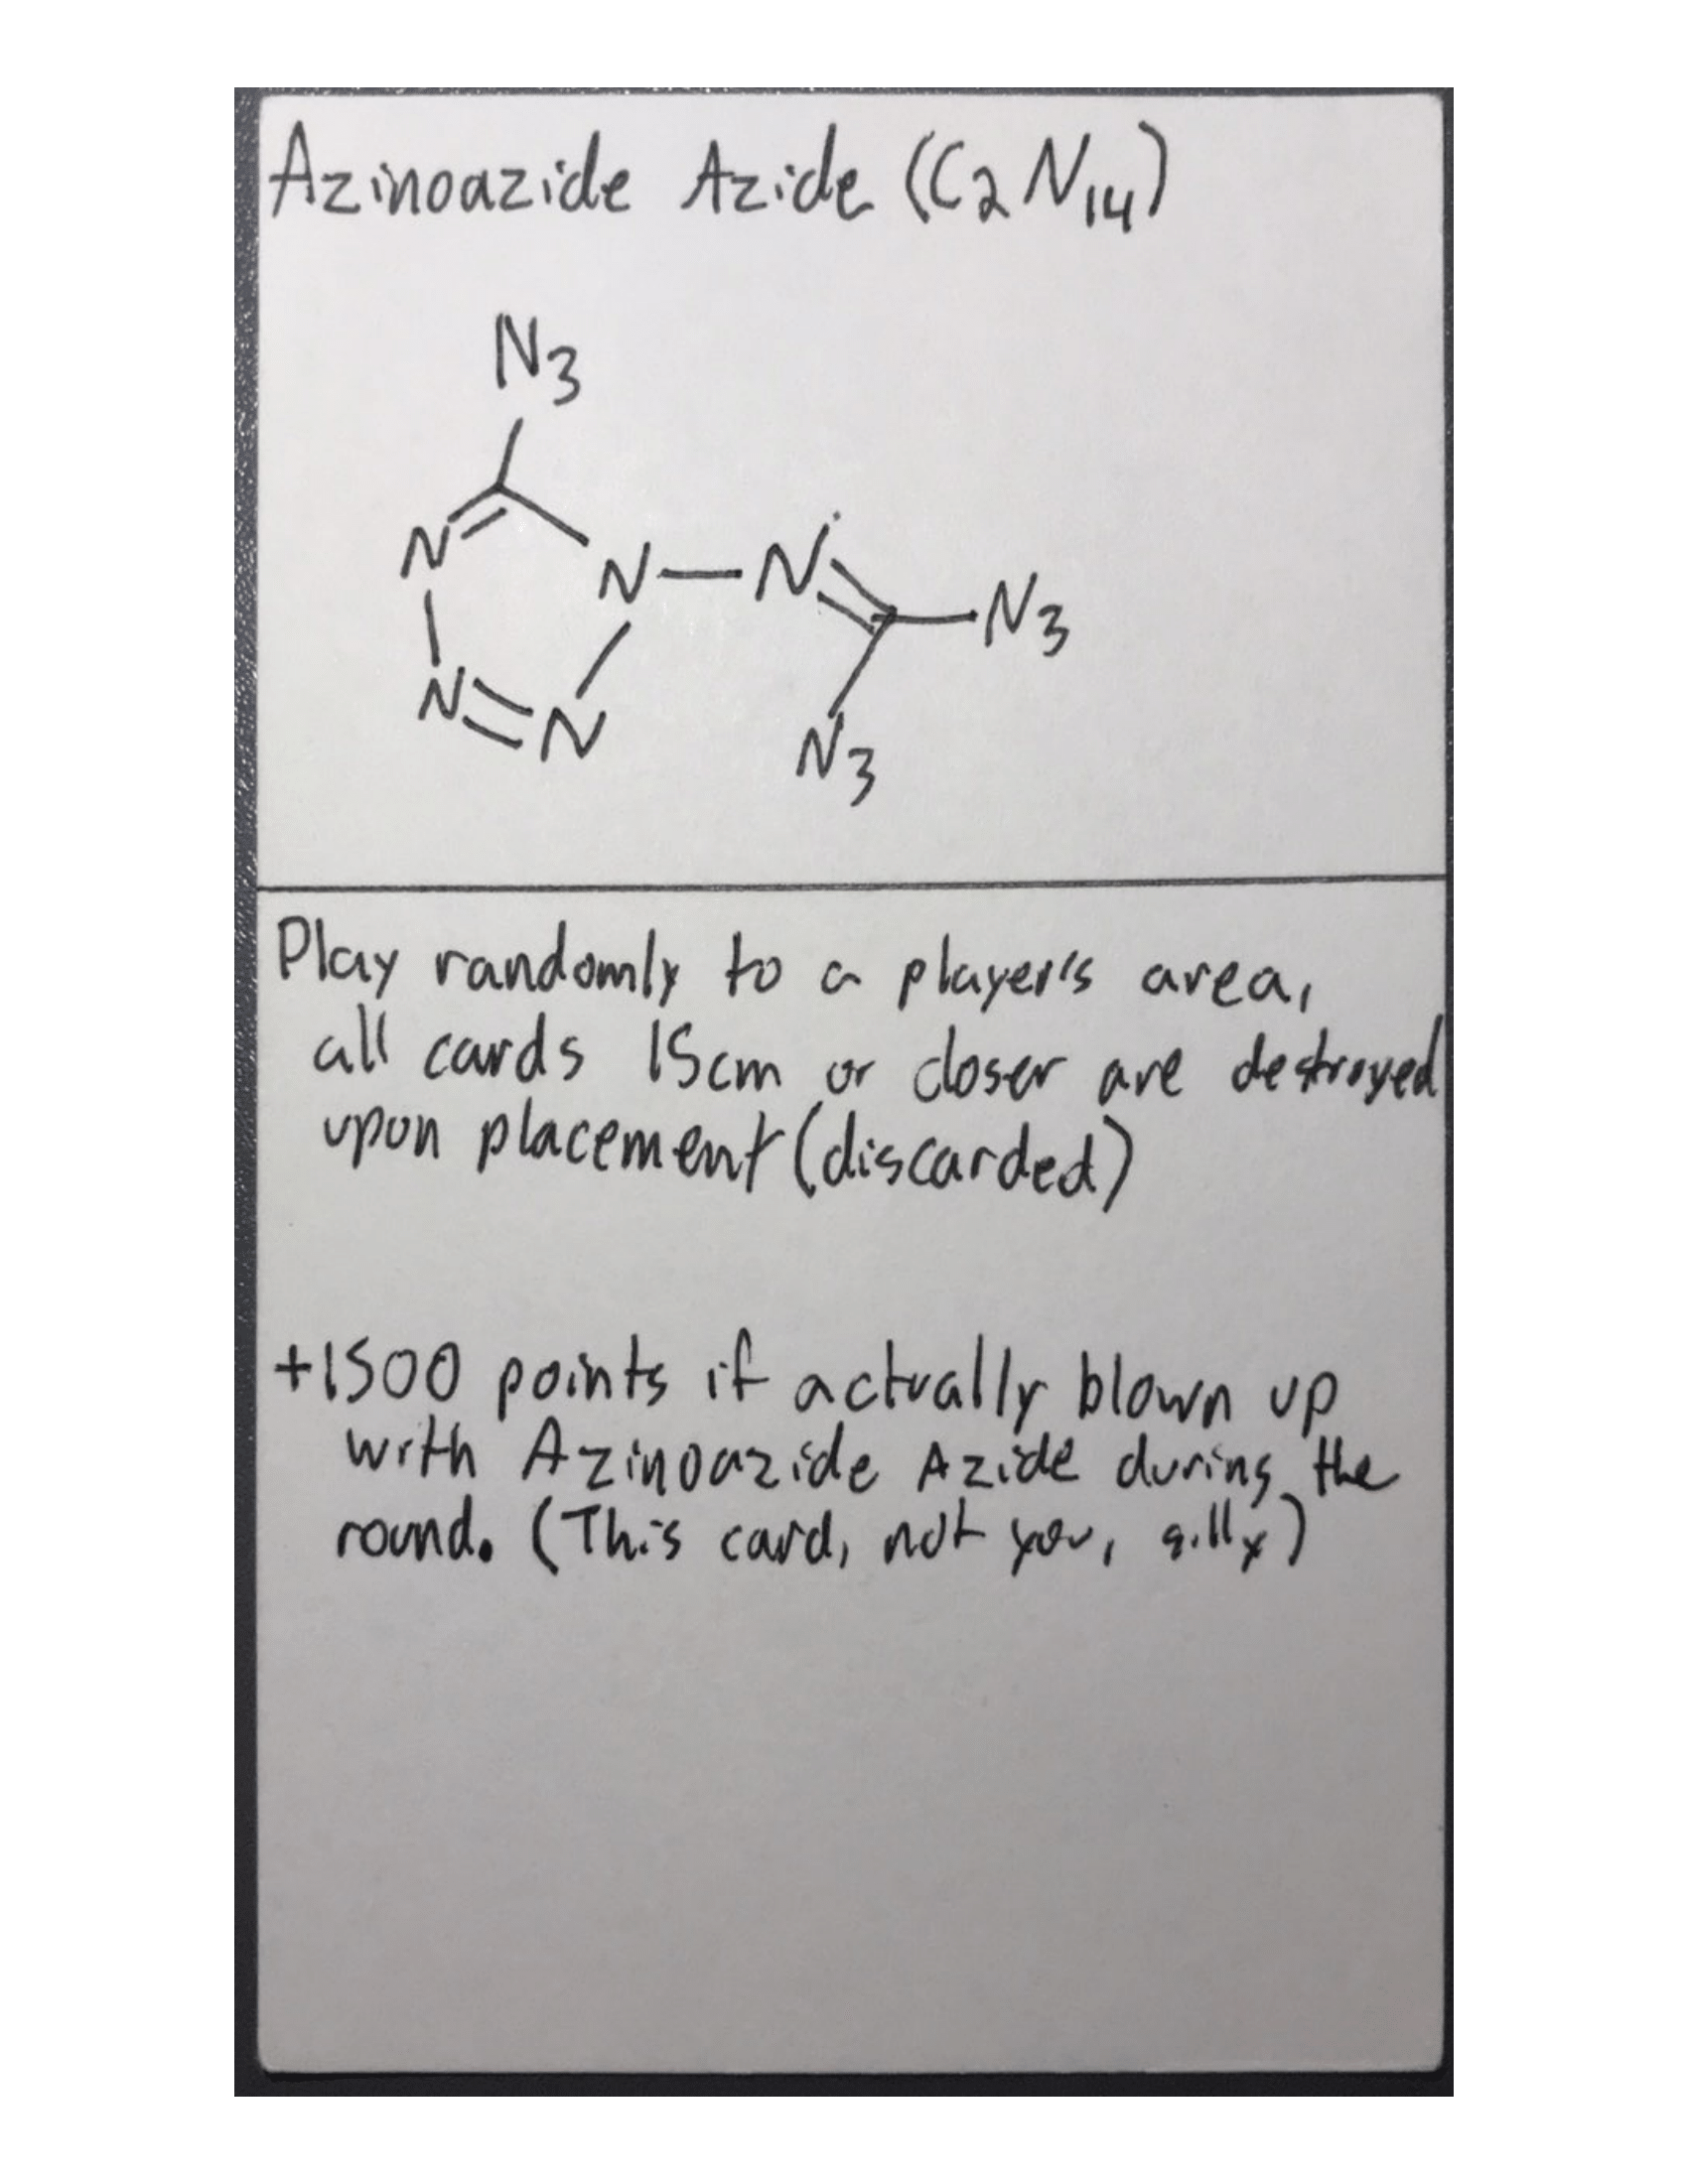 Azinoazide Azide (C₂N₁₄)
N₃
N
N—N
N₃
N
N
N₃
Play randomly to a player's area,
all cards 15cm or closer are destroyed
upon placement (discarded)
+1500 points if actually blown up
with Azinoazide Azide during the
round. (This card, not you, silly)